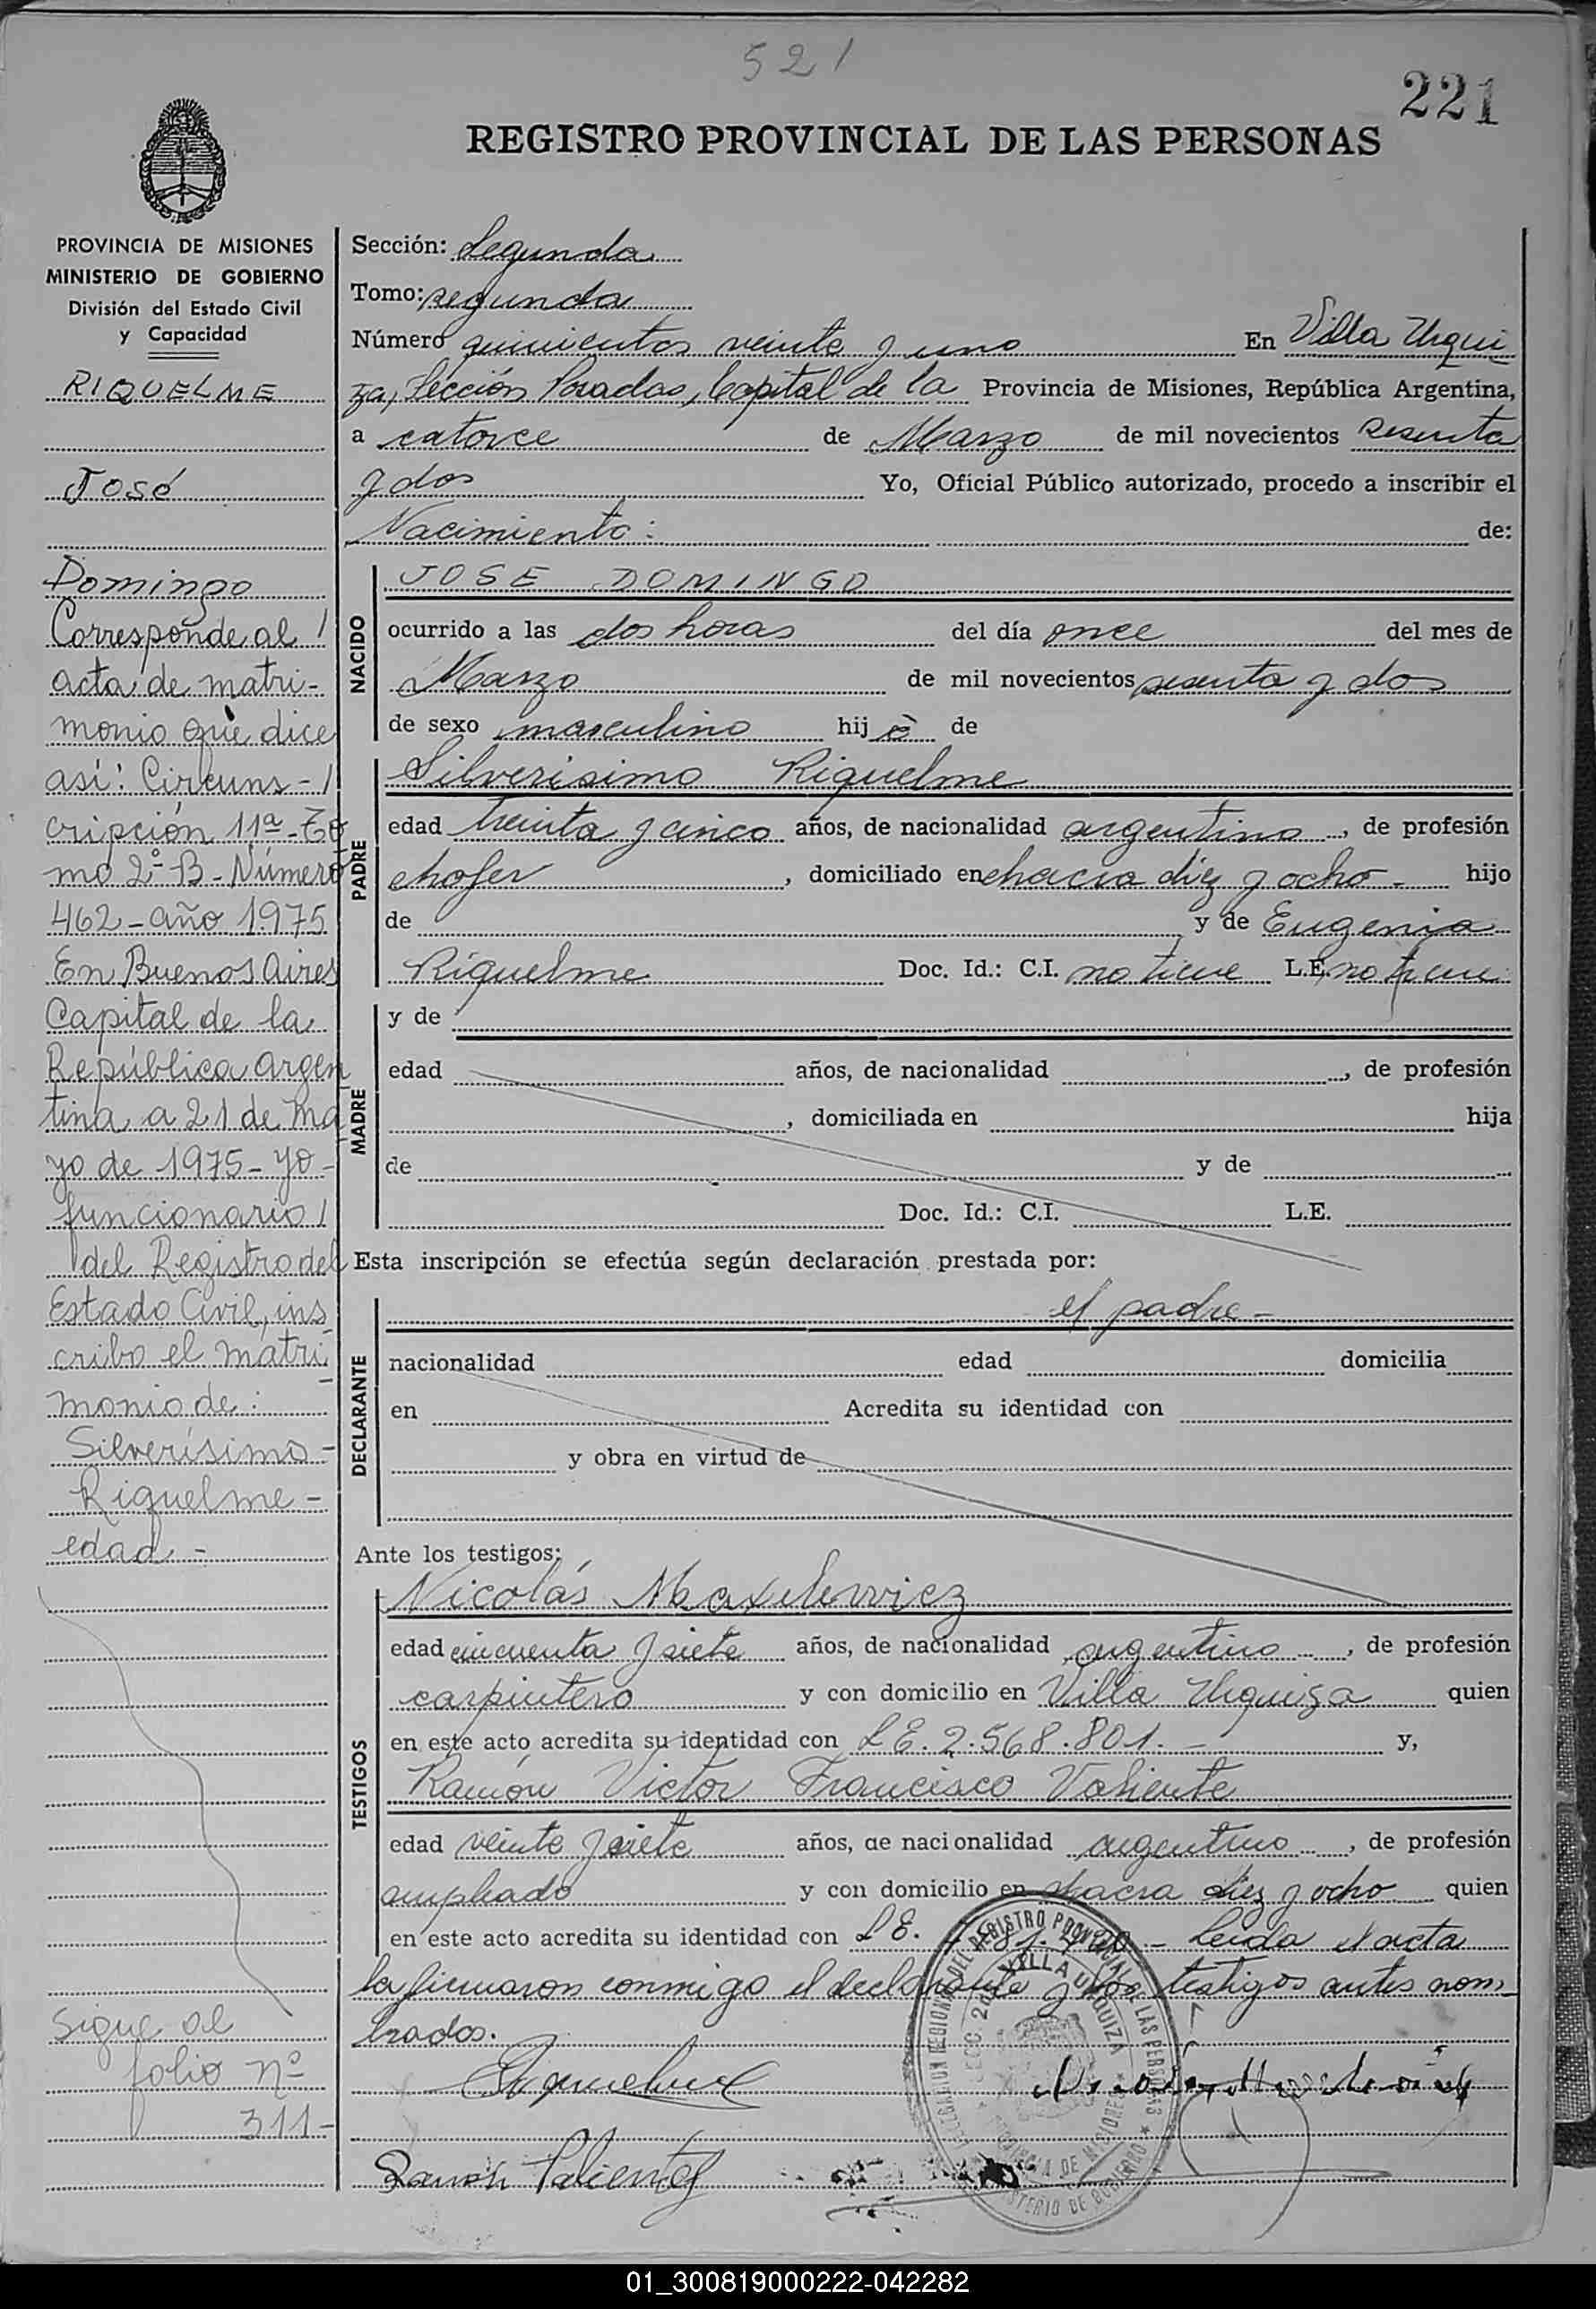 521
221
REGISTRO PROVINCIAL DE LAS PERSONAS
PROVINCIA DE MISIONES
MINISTERIO DE GOBIERNO
División del Estado Civil
y Capacidad
RIQUELME
José
Domingo
Corresponde al
acta de matri-
monio que dice
así: Circuns-
cripción 11ª-To
mo 2º-B-Número
462-año 1975
En Buenos Aires
Capital de la
República Argen
tina a 21 de Ma
yo de 1975-yo-
funcionario
del Registro del
Estado Civil, ins
cribo el matri
monio de:
Silverísimo-
Riquelme-
edad-
Sigue al
folio nº
311-
Sección: Segunda
Tomo: segunda
Número quinientos veinte y uno En Villa Urqui
za, Sección Posadas, Capital de la Provincia de Misiones, República Argentina,
a catorce de Marzo de mil novecientos sesenta
y dos Yo, Oficial Público autorizado, procedo a inscribir el
Nacimiento: de:
NACIDO
JOSE DOMINGO
ocurrido a las dos horas del día once del mes de
Marzo de mil novecientos sesenta y dos
de sexo masculino hijo de
PADRE
Silverisimo Riquelme
edad treinta y cinco años, de nacionalidad argentino, de profesión
chofer, domiciliado en chacra diez y ocho- hijo
de y de Eugenia
Riquelme Doc. Id.: C.I. no tiene L.E. no tiene
MADRE
y de
edad años, de nacionalidad , de profesión
, domiciliada en hija
de y de
Doc. Id.: C.I. L.E.
Esta inscripción se efectúa según declaración prestada por:
DECLARANTE
el padre-
nacionalidad edad domicilia
en Acredita su identidad con
y obra en virtud de
Ante los testigos:
TESTIGOS
Nicolás
edad cincuenta y siete años, de nacionalidad argentino, de profesión
carpintero y con domicilio en Villa Urquiza quien
en este acto acredita su identidad con L.E. 2.568.801.- y,
Ramón Victor Francisco Valiente
edad veinte y siete años, de nacionalidad argentino, de profesión
empleado y con domicilio en chacra diez y ocho quien
en este acto acredita su identidad con L.E. - Leida el acta
la firmaron conmigo el declarante y los testigos antes nom
brados.
Riquelme
Ramón Valiente
VILLA URQUIZA
01_300819000222-042282